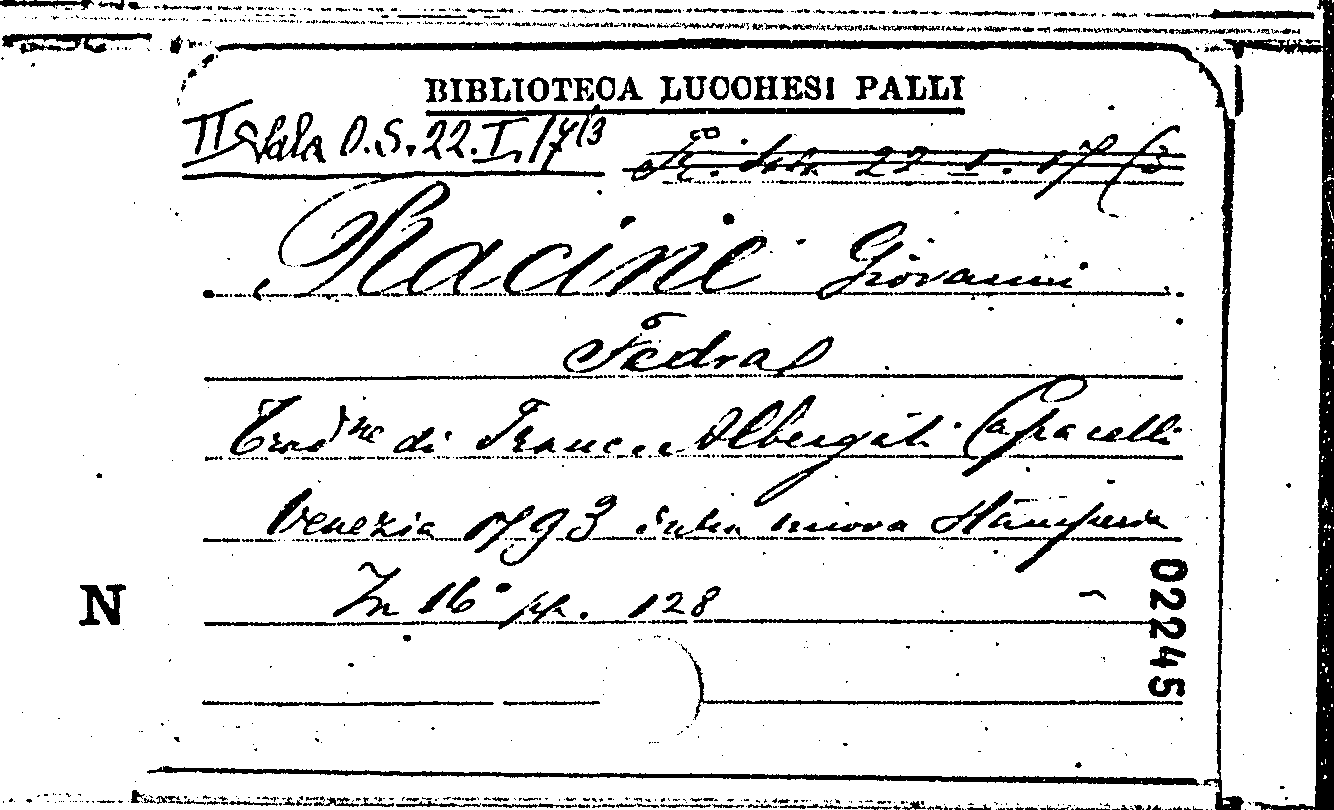 BIBLIOTECA LUCCHESI PALLI
II Sala O.S. 22. I. 17/3
22 I. 17
Racine Giovanni
Fedra
Trad.ne di Franc. Albergati Capacelli
Venezia 1793 nuova Stamperia
In 16° pp. 128
N
02245